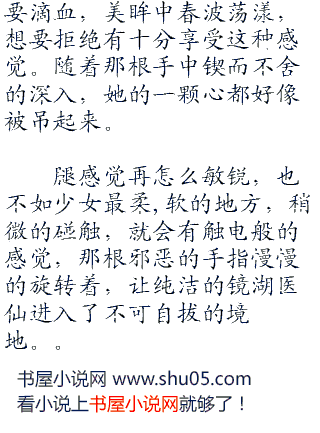 要滴血，美眸中春波荡漾，
想要拒绝有十分享受这种感
觉。随着那根手中锲而不舍
的深入，她的一颗心都好像
被吊起来。
腿感觉再怎么敏锐，也
不如少女最柔,软的地方，稍
微的碰触，就会有触电般的
感觉，那根邪恶的手指慢慢
的旋转着，让纯洁的镜湖医
仙进入了不可自拔的境
地。。
书屋小说网 www.shu05.com
看小说上书屋小说网就够了！